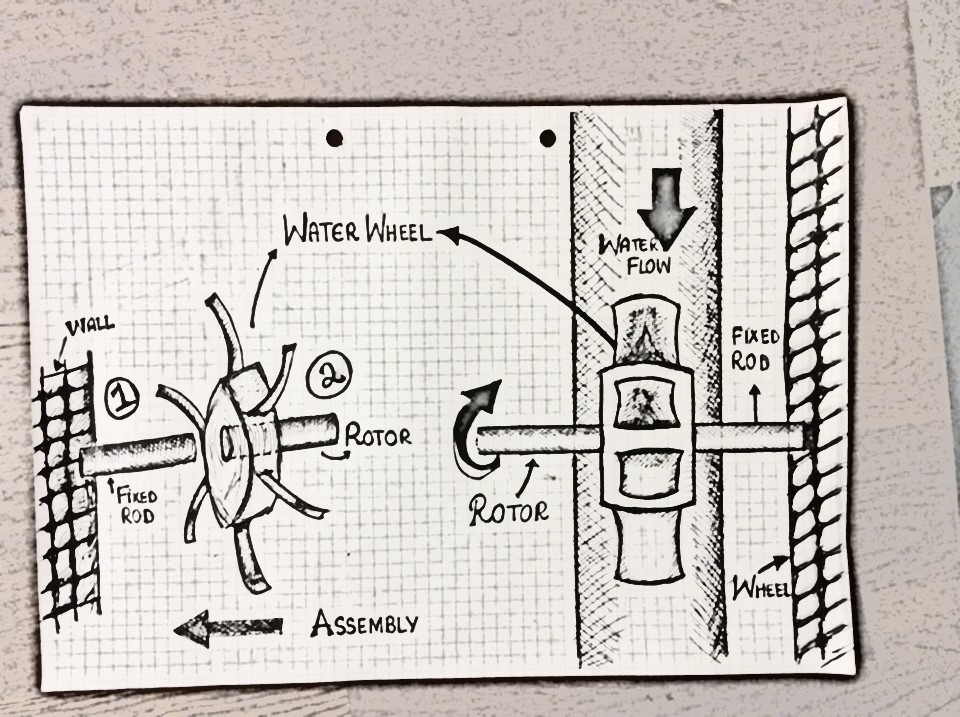 WATER WHEEL
WATER
FLOW
WALL
FIXED
ROD
1
2
ROTOR
FIXED
ROD
ROTOR
WHEEL
ASSEMBLY